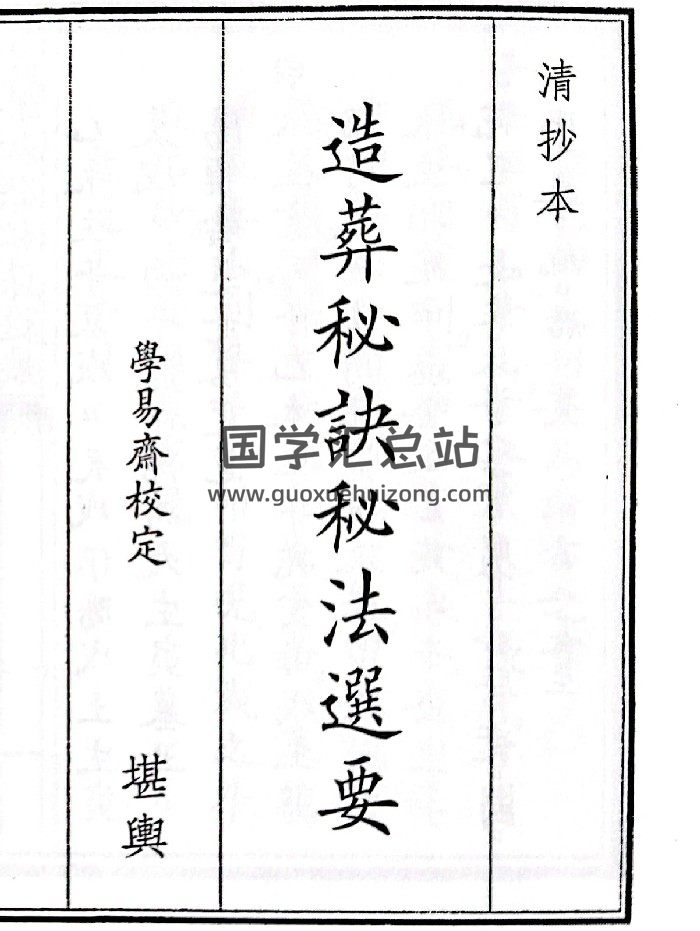 清抄本
造葬秘訣秘法選要
學易齋校定
堪輿
国学汇总站
www.guoxuehuizong.com